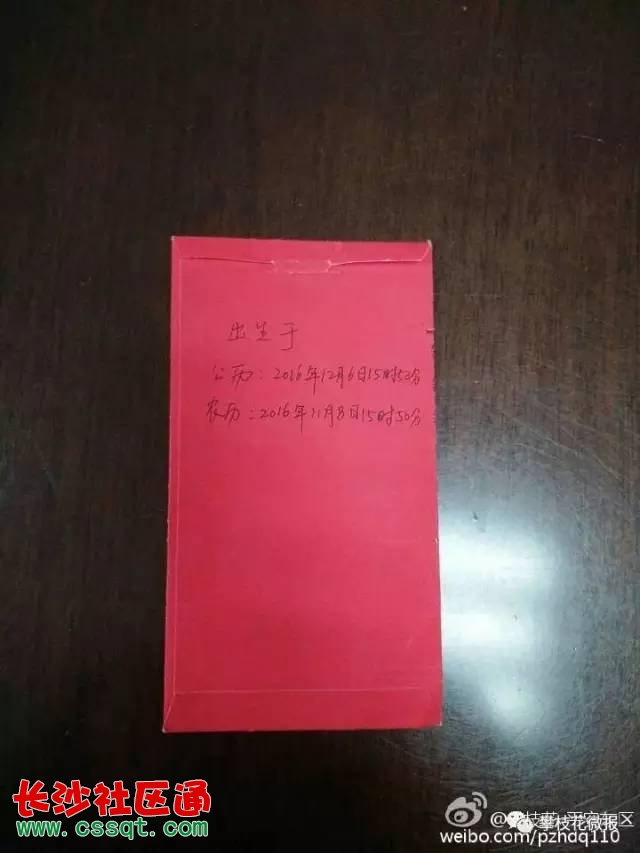 出生于
公历：2016年12月6日15时50分
农历：2016年11月8日15时50分
长沙社区通
www.cssqt.com
攀枝花微报
weibo.com/pzhdq110